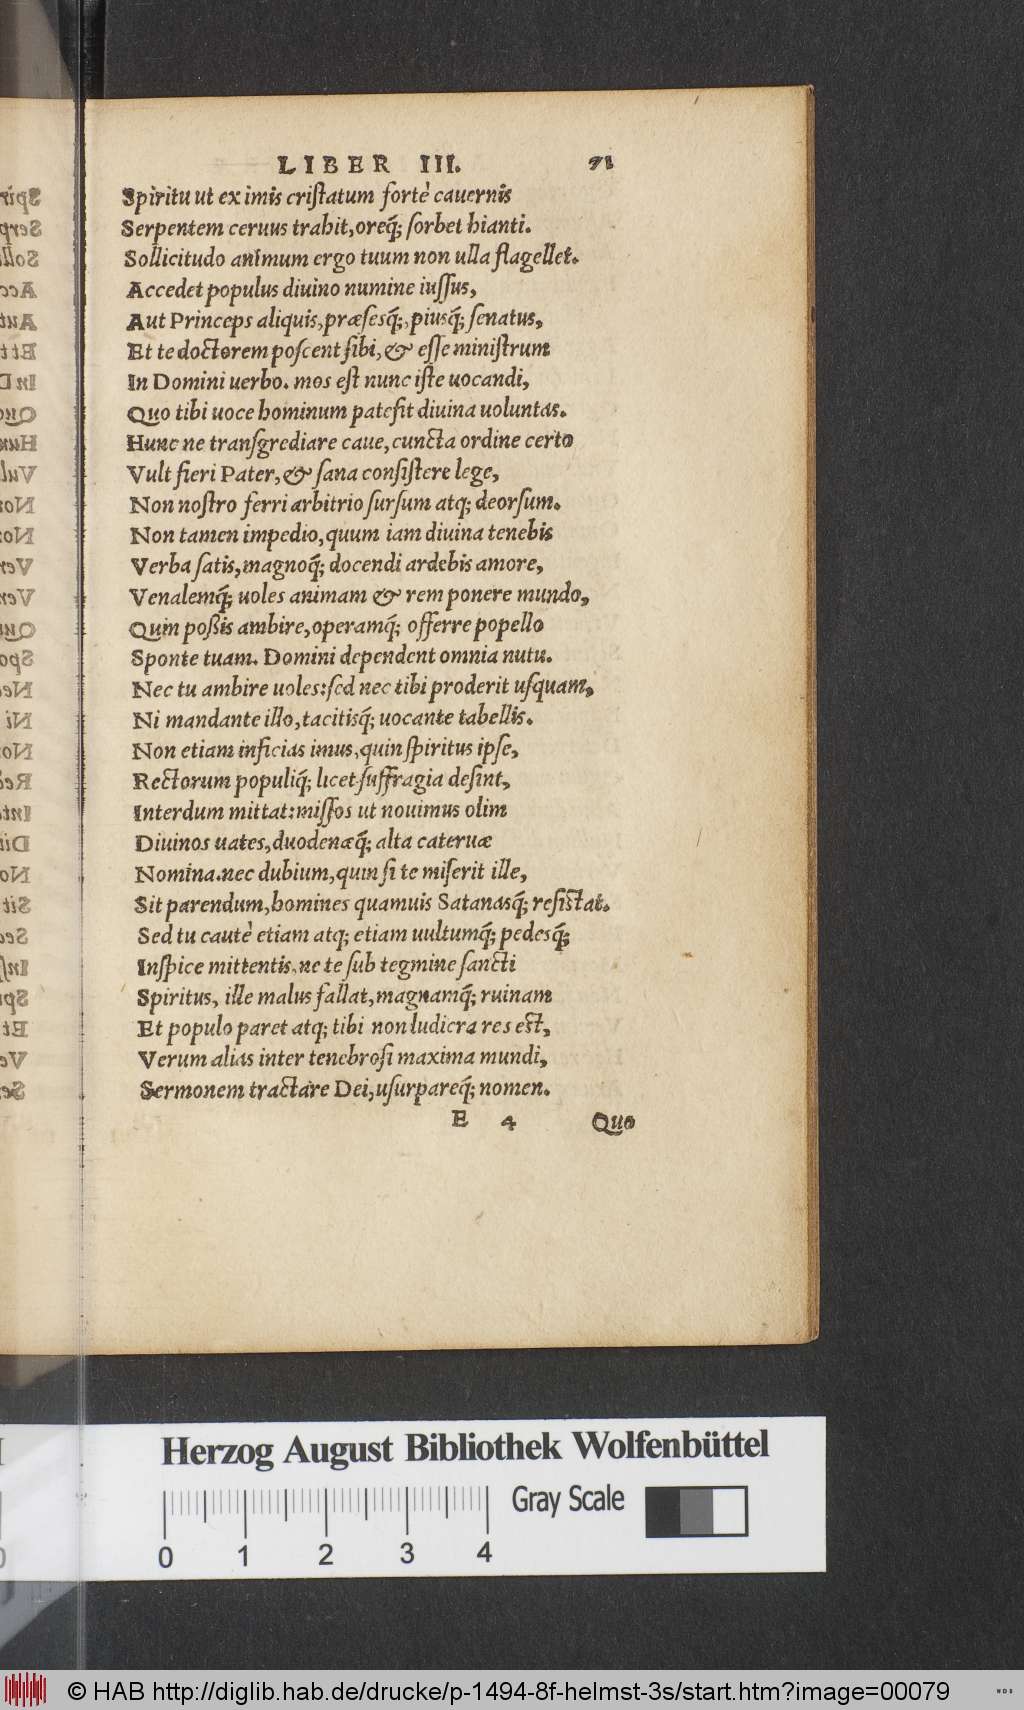 LIBER III. 71
Spiritu ut ex imis cristatum fortè cauernis
Serpentem ceruus trahit, oreq́; sorbet hianti.
Sollicitudo animum ergo tuum non ulla flagellet.
Accedet populus diuino numine iussus,
Aut Princeps aliquis, præsesq́;, piusq́; senatus,
Et te doctorem poscent sibi, & esse ministrum
In Domini uerbo. mos est nunc iste uocandi,
Quo tibi uoce hominum patefit diuina uoluntas.
Hunc ne transgrediare caue, cuncta ordine certo
Vult fieri Pater, & sana consistere lege,
Non nostro ferri arbitrio sursum atq; deorsum.
Non tamen impedio, quum iam diuina tenebis
Verba satis, magnoq́; docendi ardebis amore,
Venalemq́; uoles animam & rem ponere mundo,
Quin poßis ambire, operamq́; offerre popello
Sponte tuam. Domini dependent omnia nutu.
Nec tu ambire uoles: sed nec tibi proderit usquam,
Ni mandante illo, tacitisq́; uocante tabellis.
Non etiam inficias imus, quin spiritus ipse,
Rectorum populiq́; licet suffragia desint,
Interdum mittat: missos ut nouimus olim
Diuinos uates, duodenæq́; alta cateruæ
Nomina. nec dubium, quin si te miserit ille,
Sit parendum, homines quamuis Satanasq́; resistat.
Sed tu cautè etiam atq; etiam uultumq́; pedesq́;
Inspice mittentis, ne te sub tegmine sancti
Spiritus, ille malus fallat, magnamq́; ruinam
Et populo paret atq; tibi non ludicra res est,
Verum alias inter tenebrosi maxima mundi,
Sermonem tractare Dei, usurpareq́; nomen.
E 4 Quo
Herzog August Bibliothek Wolfenbüttel
Gray Scale
0 1 2 3 4
© HAB http://diglib.hab.de/drucke/p-1494-8f-helmst-3s/start.htm?image=00079